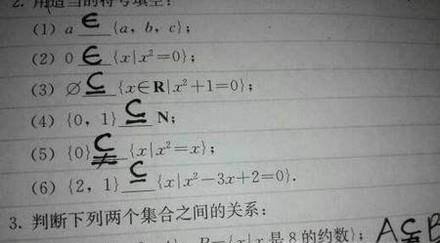 2. 用适当的符号填空：
(1) a ∈ {a, b, c}；
(2) 0 ∈ {x|x²=0}；
(3) ∅ ⊆ {x∈R|x²+1=0}；
(4) {0, 1} ⊆ N；
(5) {0} ⊊ {x|x²=x}；
(6) {2, 1} ⊆ {x|x²−3x+2=0}.
3. 判断下列两个集合之间的关系：
B={x|x 是 8 的约数}； A⊊B